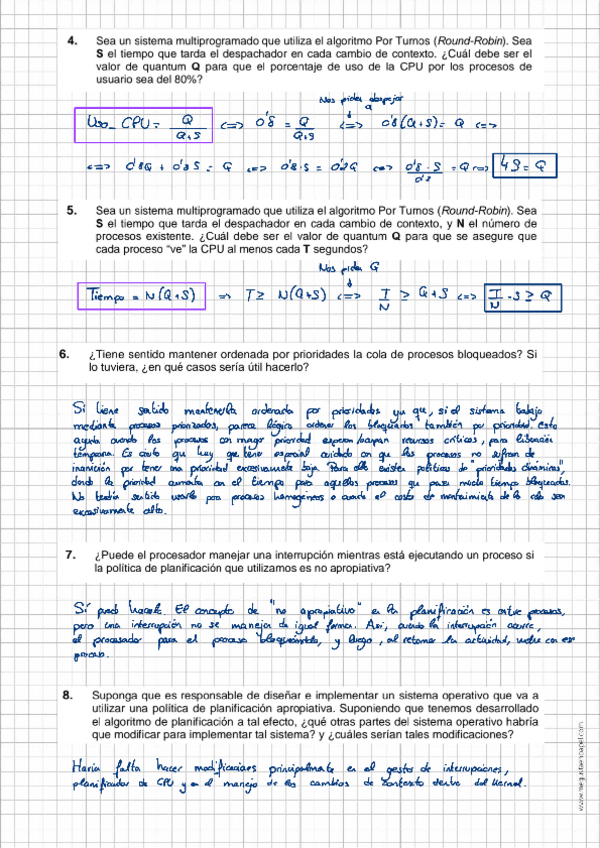 4. Sea un sistema multiprogramado que utiliza el algoritmo Por Turnos (Round-Robin). Sea
S el tiempo que tarda el despachador en cada cambio de contexto. ¿Cuál debe ser el
valor de quantum Q para que el porcentaje de uso de la CPU por los procesos de
usuario sea del 80%?
Nos piden despejar Q
Uso_CPU = Q/(Q+S) <=> 0'8 = Q/(Q+S) <=> 0'8(Q+S) = Q <=>
<=> 0'8Q + 0'8S = Q <=> 0'8·S = 0'2Q <=> 0'8·S/0'2 = Q <=> 4S = Q
5. Sea un sistema multiprogramado que utiliza el algoritmo Por Turnos (Round-Robin). Sea
S el tiempo que tarda el despachador en cada cambio de contexto, y N el número de
procesos existente. ¿Cuál debe ser el valor de quantum Q para que se asegure que
cada proceso "ve" la CPU al menos cada T segundos?
Nos piden Q
Tiempo = N(Q+S) => T ≥ N(Q+S) <=> T/N ≥ Q+S <=> T/N - S ≥ Q
6. ¿Tiene sentido mantener ordenada por prioridades la cola de procesos bloqueados? Si
lo tuviera, ¿en qué casos sería útil hacerlo?
Si tiene sentido mantenerla ordenada por prioridades ya que, si el sistema trabaja
mediante procesos priorizados, parece lógico ordenar los bloqueados también por prioridad. Esto
ayuda cuando los procesos con mayor prioridad esperan recursos críticos, para liberación
temprana. Es cierto que hay que tener especial cuidado con que los procesos no sufran de
inanición por tener una prioridad excesivamente baja. Para ello existen políticas de "prioridades dinámicas",
donde la prioridad aumenta con el tiempo para aquellos procesos que pasen mucho tiempo bloqueados.
No tendría sentido usarlo para procesos homogéneos o cuando el costo de mantenimiento de la cola sea
excesivamente alto.
7. ¿Puede el procesador manejar una interrupción mientras está ejecutando un proceso si
la política de planificación que utilizamos es no apropiativa?
Sí puede hacerlo. El concepto de "no apropiativo" en la planificación es entre procesos,
pero una interrupción no se maneja de igual forma. Así, cuando la interrupción ocurre,
el procesador para el proceso bloqueándolo, y luego, al retomar la actividad, vuelve con ese
proceso.
8. Suponga que es responsable de diseñar e implementar un sistema operativo que va a
utilizar una política de planificación apropiativa. Suponiendo que tenemos desarrollado
el algoritmo de planificación a tal efecto, ¿qué otras partes del sistema operativo habría
que modificar para implementar tal sistema? y ¿cuáles serían tales modificaciones?
Haría falta hacer modificaciones principalmente en el gestor de interrupciones,
planificador de CPU y en el manejo de los cambios de contexto dentro del kernel.